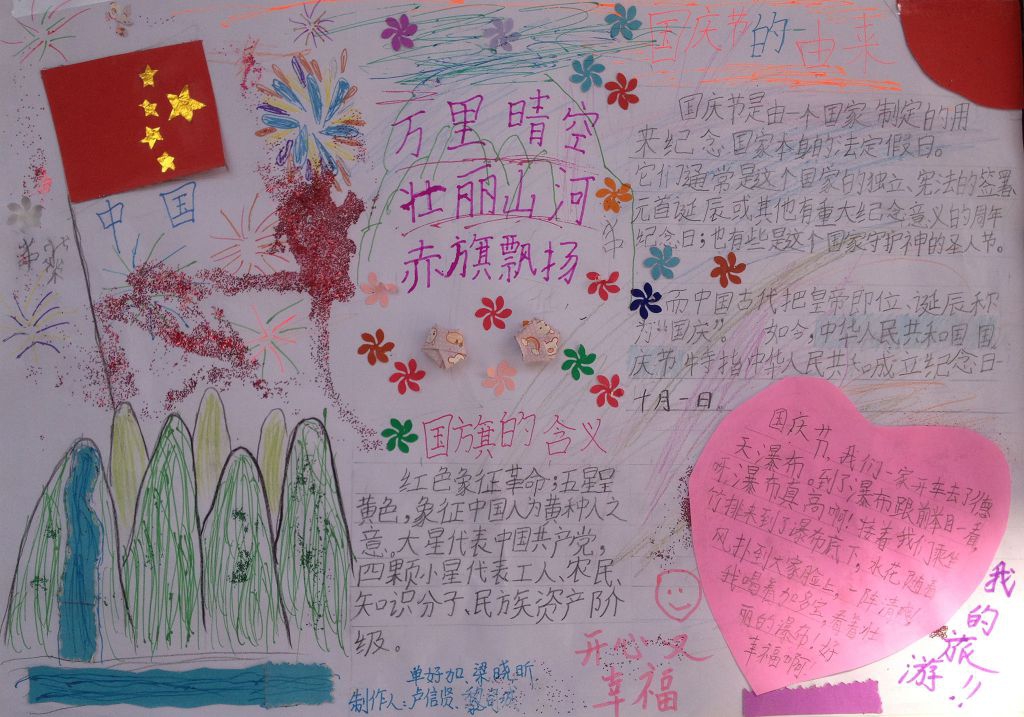 中国
万里晴空
壮丽山河
赤旗飘扬
国庆节的由来
国庆节是由一个国家制定的用
来纪念国家本身的法定假日。
它们通常是这个国家的独立、宪法的签署
元首诞辰或其他有重大纪念意义的周年
纪念日；也有些是这个国家守护神的圣人节。
而中国古代把皇帝即位、诞辰称
为“国庆”。如今，中华人民共和国国
庆节特指中华人民共和成立纪念日
十月一日。
国旗的含义
红色象征革命；五星呈
黄色，象征中国人为黄种人之
意。大星代表中国共产党，
四颗小星代表工人、农民、
知识分子、民族资产阶
级。
单好加 梁晓昕
制作人：卢信贤
开心又
幸福
国庆节，我们一家开车去了德
天瀑布。到了瀑布跟前一看，
呀瀑布真高啊！接着我们乘坐
竹排来到了瀑布底下，水花随着
风扑到大家脸上，一阵清凉！
我喝着加多宝，看着壮
丽的瀑布！好
幸福啊！
我的旅游！！